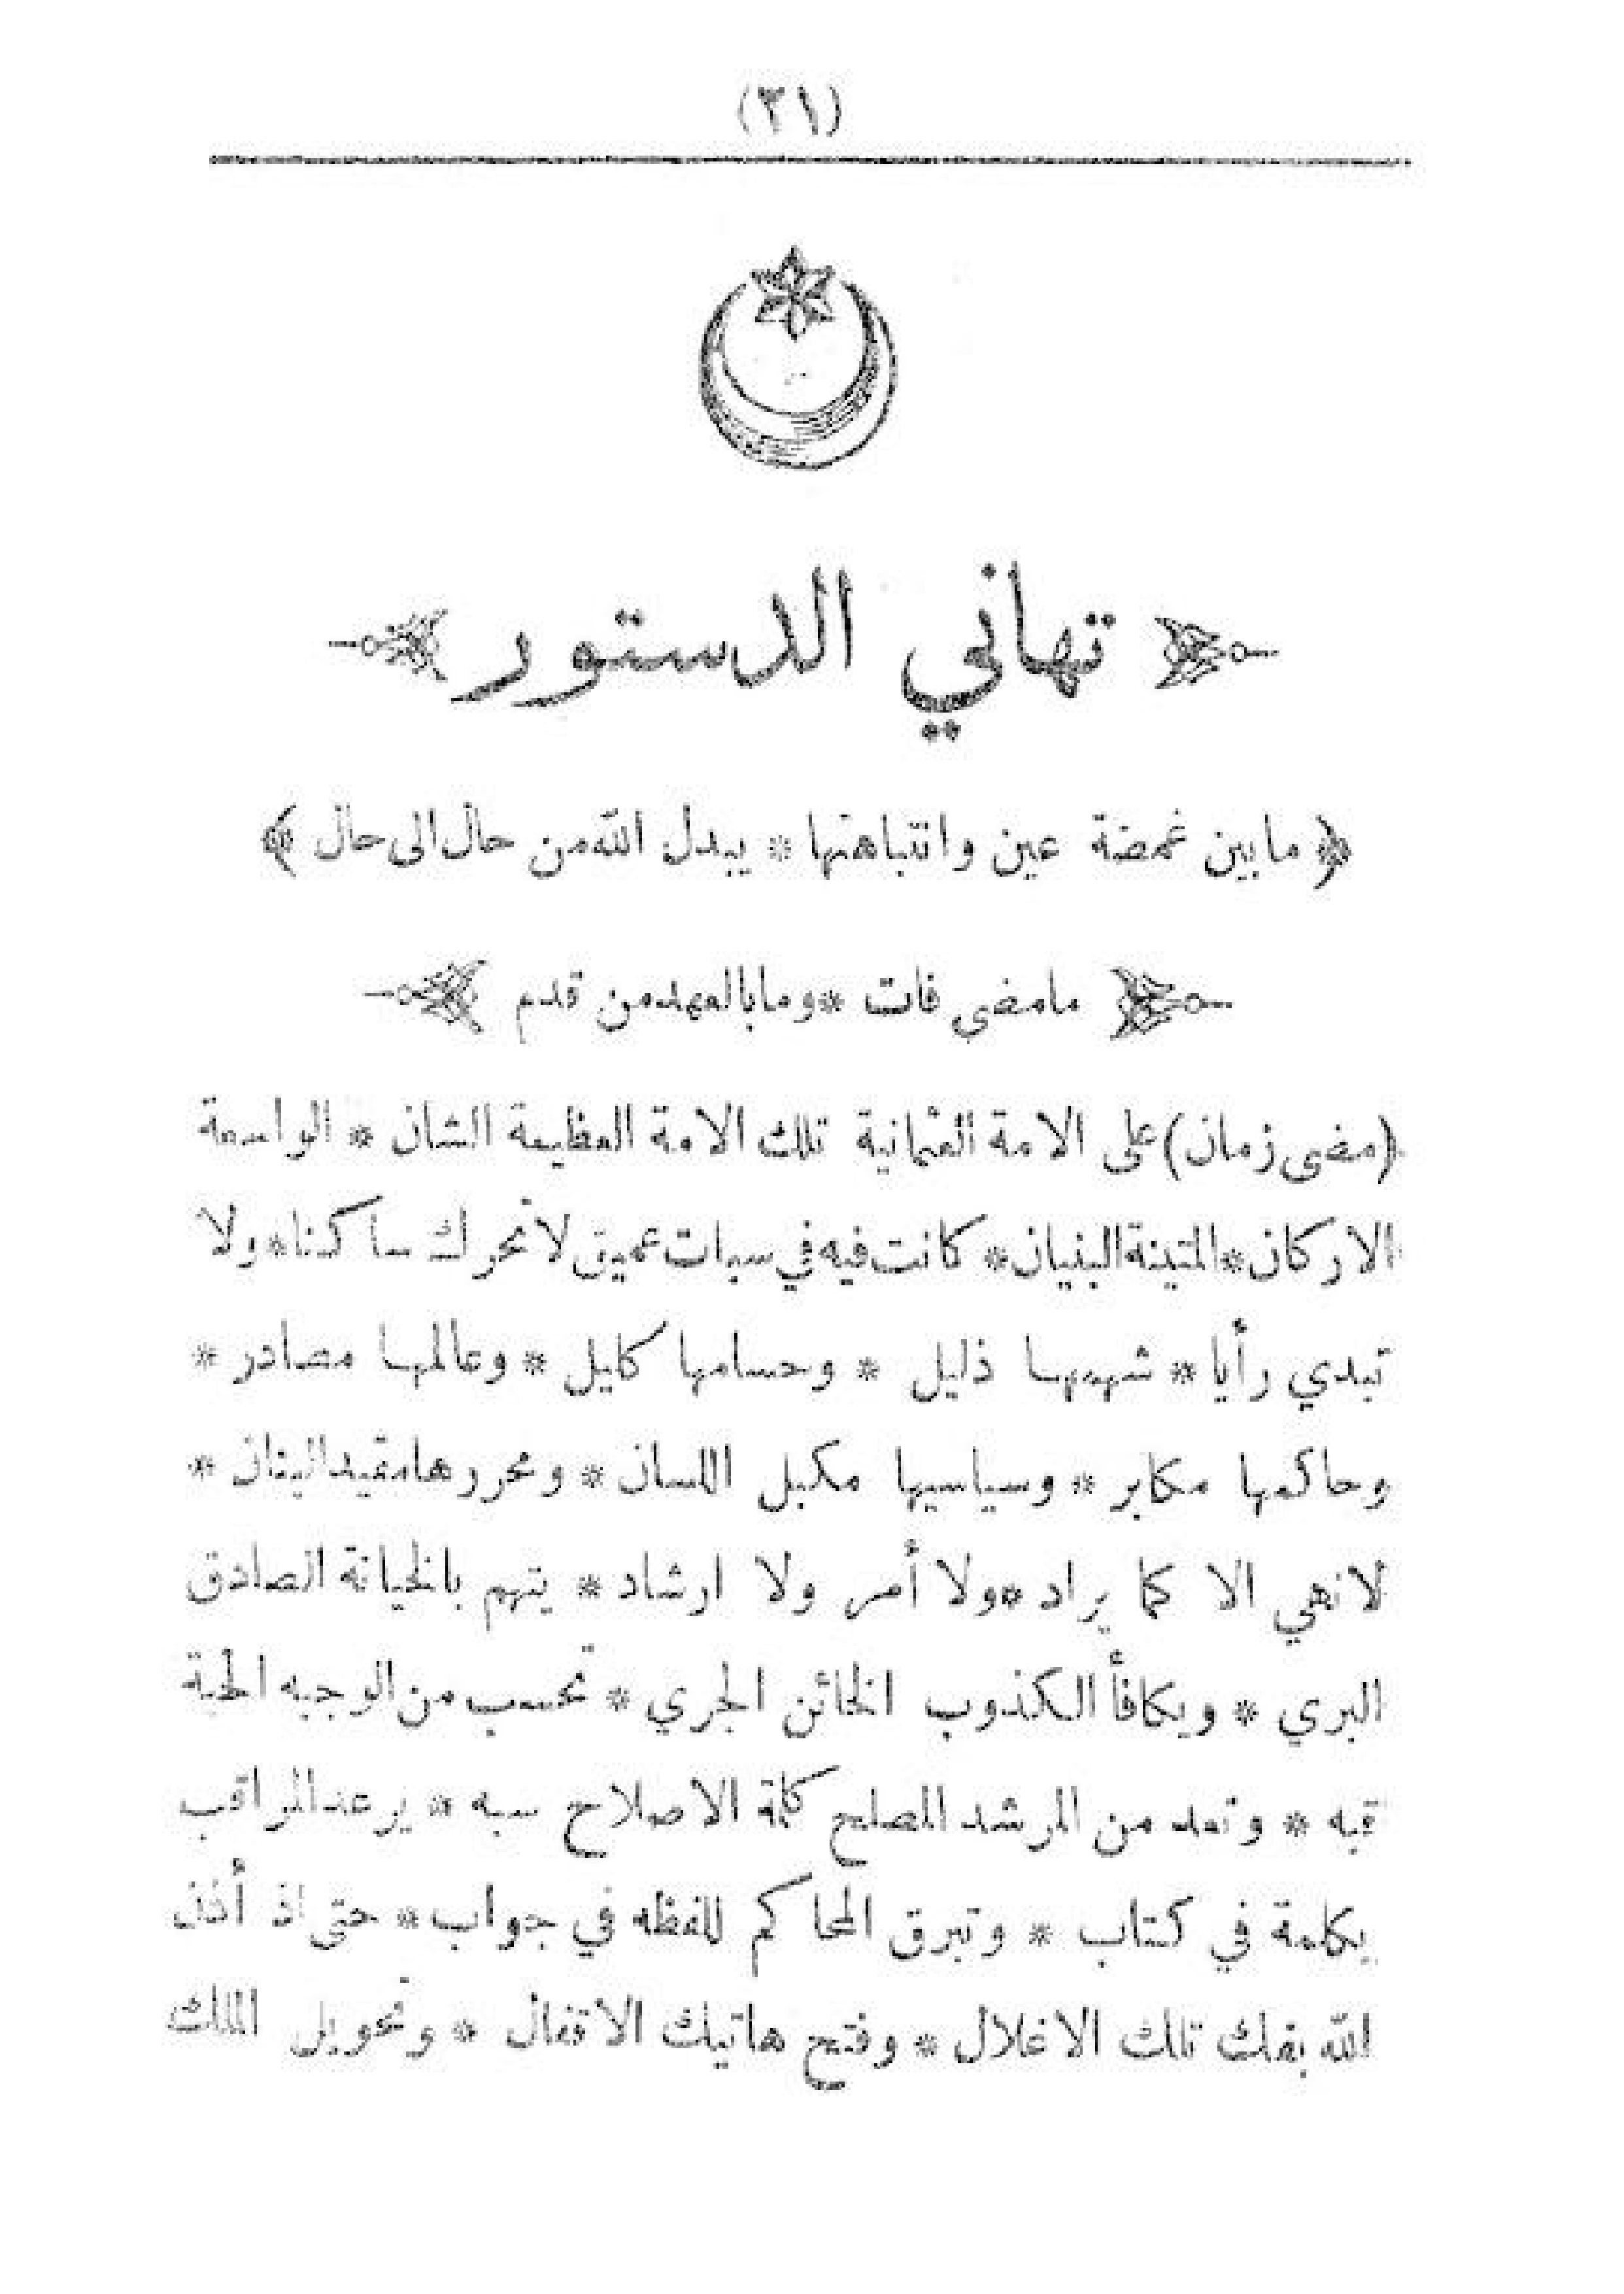 (٣١)
تهاني الدستور
﴿ ما بين غمضة عين وانتباهتها * يبدل الله من حال الى حال ﴾
مامضى فات * وما بالعهد من قدم
(مضى زمان) على الامة العثمانية تلك الامة العظيمة الشان * الواسعة
الاركان * المتينة البنيان * كانت فيه في سبات عميق لا تحرك ساكنا * ولا
تبدي رأيا * شهمها ذليل * وحسامها كليل * وعالمها مصادر *
وحاكمها مكابر * وسياسيها مكبل اللسان * ومحررها مقيد البنان *
لا نهي الا كما يراد * ولا أمر ولا ارشاد * يتهم بالخيانة الصادق
البري * ويكافأ الكذوب الخائن الجري * تحسب من الوجيه الحبة
قبه * وتعد من المرشد المصلح كلمة الاصلاح سبه * يرعد المراقب
بكلمة في كتاب * وتبرق المحاكم للفظه في جواب * حتى اذ أذن
الله بفك تلك الاغلال * وفتح هاتيك الاقفال * وتحويل الملك